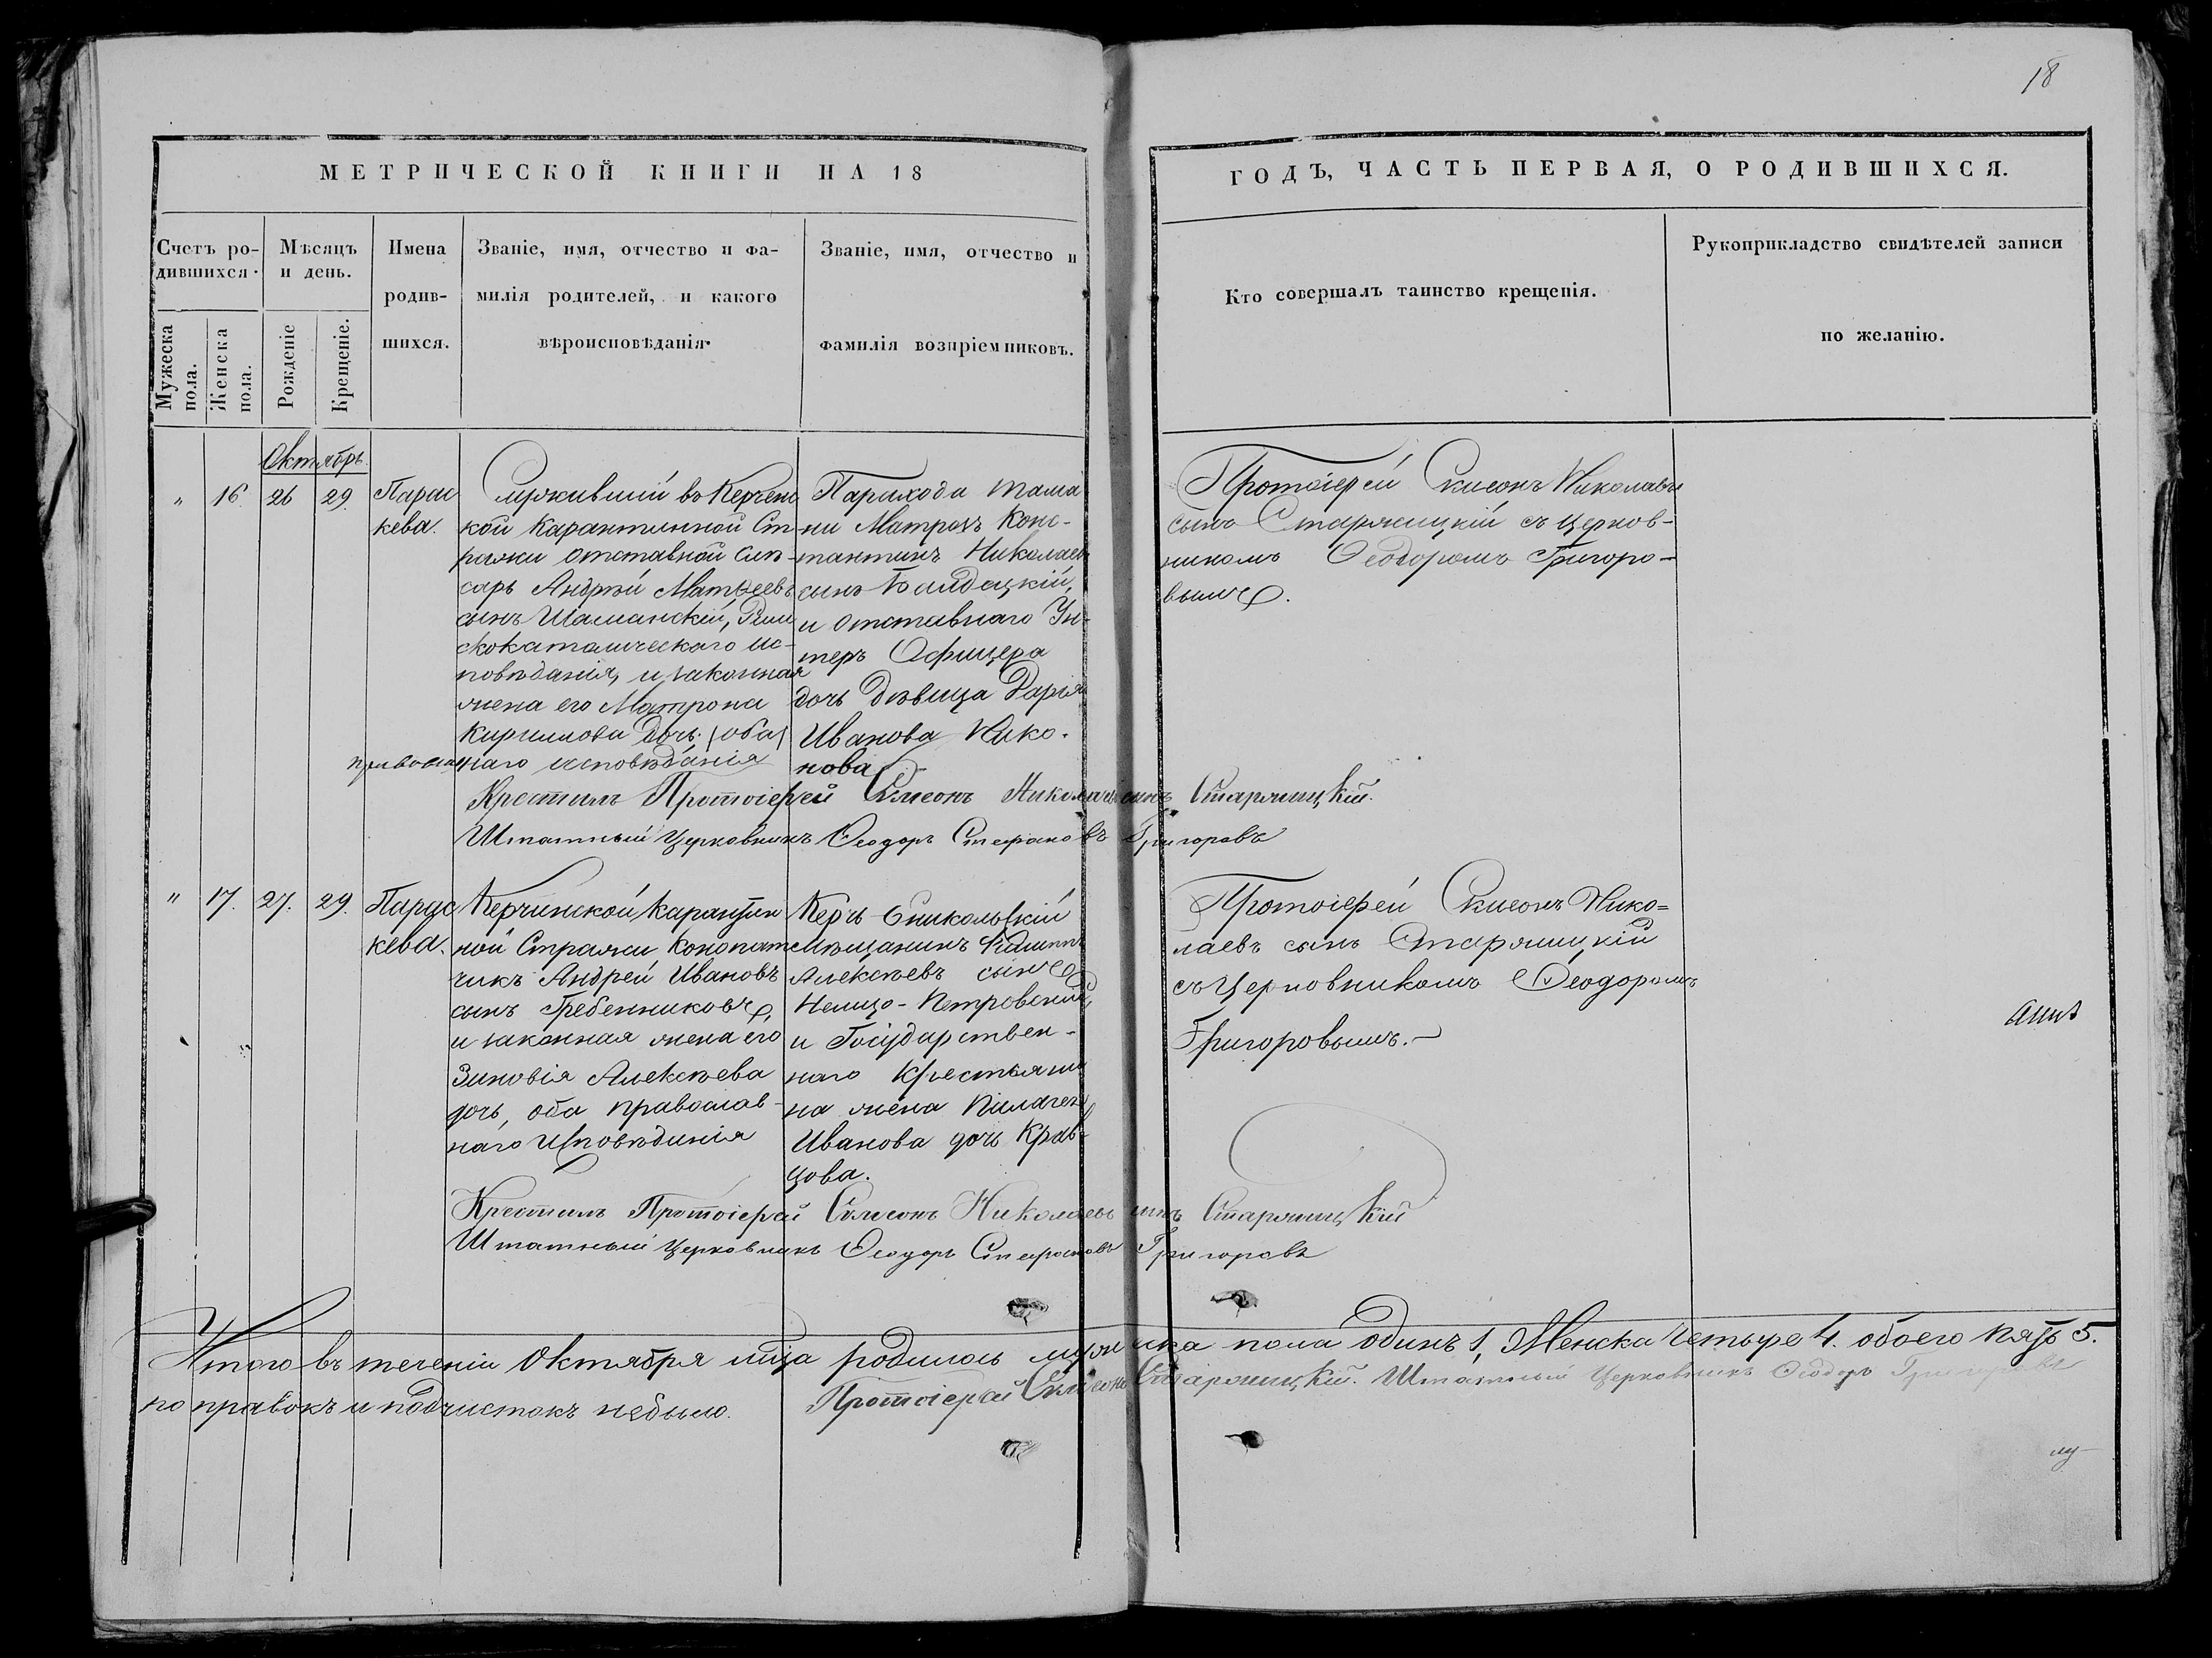 18
МЕТРИЧЕСКОЙ КНИГИ НА 18
ГОДЪ, ЧАСТЬ ПЕРВАЯ, О РОДИВШИХСЯ.
Счетъ ро-
дившихся.
Мужеска пола.
Женска пола.
Мѣсяцъ
и день.
Рожденіе
Крещеніе.
Имена
родив-
шихся.
Званіе, имя, отчество и фа-
милія родителей, и какого
вѣроисповѣданія.
Званіе, имя, отчество и
фамилія воспріемниковъ.
Кто совершалъ таинство крещенія.
Рукоприкладство свидѣтелей записи
по желанію.
Октябрь.
" 16 26 29. Парас
кева.
Служившій въ Керченс
кой Карантинной Ст-
ражи отставной слѣ-
сарь Андрей Матвеевъ
сынъ Шаманскій, Рим
скокатолическаго ис-
повѣданія, и законная
жена его Матрона
Кириллова дочь (оба)
православнаго исповѣданія
Парахода Тама
ни Матрозъ Конс-
тантинъ Николаевъ
сынъ Байдацкій,
и отставнаго Ун-
теръ Офицера
дочь девица Дарія
Иванова Нико-
нова
Протоіерей Симеонъ Николаевъ
сынъ Старжицкій съ Церков-
никомъ Ѳеодоромъ Григоро-
вымъ.
Крестилъ Протоіерей Симеонъ Николаевъ сынъ Старжицкій.
Штатный Церковникъ Ѳеодоръ Стефановъ Григоровъ
" 17. 27. 29. Парас
кева.
Керчинской Карантин
ной Стражи Конопат
чикъ Андрей Ивановъ
сынъ Гребенниковъ,
и законная жена его
Зиновія Алексѣева
дочь, оба православ-
наго исповѣданія
Керчь-Еникольскій
Мещанинъ
Алексѣевъ сынъ
Немцо-Петровскій,
и Государствен-
наго Крестьяни
на жена Пилагея
Иванова дочь Крав-
цова.
Протоіерей Симеонъ Нико=
лаевъ сынъ Старжицкій
съ Церковникомъ Ѳеодоромъ
Григоровымъ.
Крестилъ Протоіерей Симеонъ Николаевъ сынъ Старжицкій
Штатный Церковникъ Ѳеодоръ Стефановъ Григоровъ
Итого въ теченіи Октября мца родилось мужеска пола одинъ 1, Женска четыре 4. обоего пять 5.
поправокъ и подчистокъ небыло. Протоіерей Симеонъ Старжицкій. Штатный Церковникъ Ѳеодоръ Григоровъ